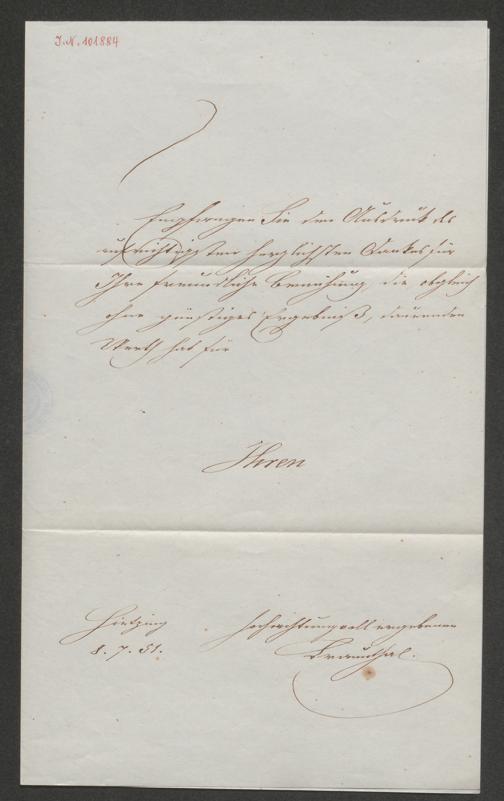 J.N. 101884
Empfangen Sie den Ausdruck des
aufrichtigsten herzlichsten Dankes für
Ihre freundliche Bemühung, die obgleich
ohne günstiges Ergebniß, dauernden
Werth hat für
Ihren
Hietzing
8. 7. 51.
hochachtungsvoll ergebenen
Braunthal.